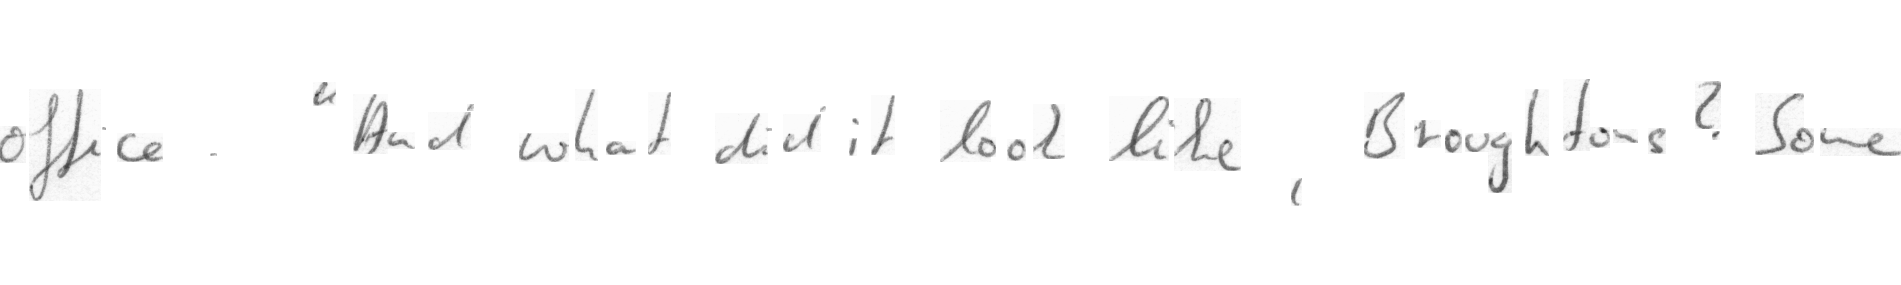 office. "And what did it look like, Broughtons? Some